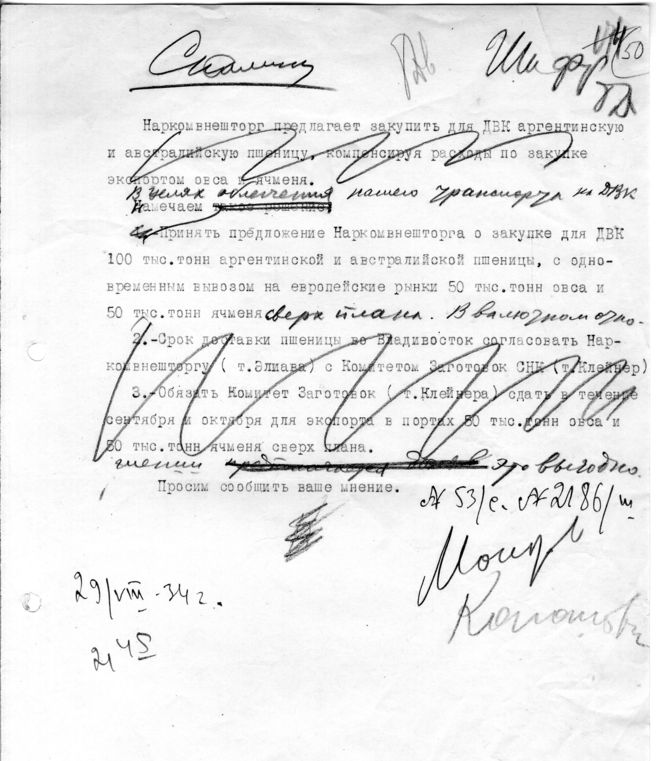 50
Сталину
Шифр
Наркомвнешторг предлагает закупить для ДВК аргентинскую
и австралийскую пшеницу, компенсируя расходы по закупке
экспортом овса и ячменя.
В целях облегчения нашего транспорта на ДВК
намечаем такое решение:
Принять предложение Наркомвнешторга о закупке для ДВК
100 тыс.тонн аргентинской и австралийской пшеницы, с одно-
временным вывозом на европейские рынки 50 тыс.тонн овса и
50 тыс.тонн ячменя сверх плана. В валютном отно-
2.-Срок доставки пшеницы во Владивосток согласовать Нар-
комвнешторгу ( т.Элиава) с Комитетом Заготовок СНК (т.Клейнер)
3.-Обязать Комитет Заготовок ( т.Клейнера) сдать в течение
сентября и октября для экспорта в портах 50 тыс.тонн овса и
50 тыс.тонн ячменя сверх плана.
шении это выгодно.
Просим сообщить ваше мнение.
N 53/с. N 2186/ш
Молотов
Каганович
29/VIII-34 г.
21 45